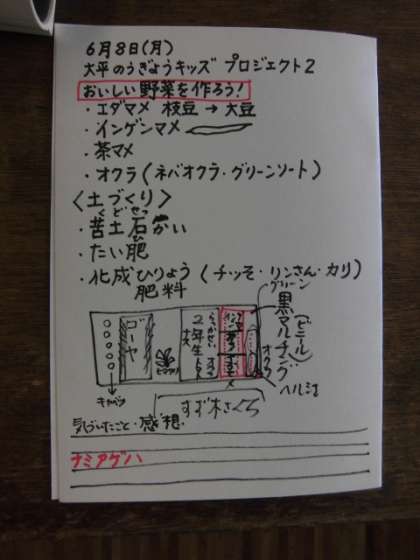 6月8日(月)
大平のうぎょうキッズ プロジェクト2
おいしい野菜を作ろう!
・エダマメ 枝豆 → 大豆
・インゲンマメ
・茶マメ
・オクラ(ネバオクラ・グリーンソート)
〈土づくり〉
くどせっ
・苦土石かい
・たい肥
・化成ひりょう(チッそ・リンさん・カリ)
肥料
グリーン
黒マルチング(ビニール)
オクラ
ヘルシエ
ゴーヤ
ヒマワリ
2年生
らっかせい
ナス
キャベツ
すず木さくら
気づいたこと・感想
ナミアゲハ